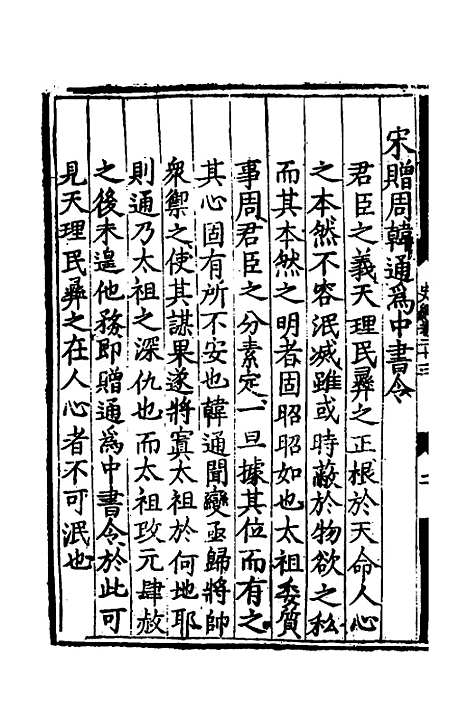 宋贈周韓通爲中書令
君臣之義天理民彝之正根於天命人心
之本然不容泯滅雖或時蔽於物欲之私
而其本然之明者固昭昭如也太祖委質
事周君臣之分素定一旦據其位而有之
其心固有所不安也韓通聞變亟歸將帥
衆禦之使其謀果遂將寘太祖於何地耶
則通乃太祖之深仇也而太祖攺元肆赦
之後未遑他務即贈通爲中書令於此可
見天理民彝之在人心者不可泯也